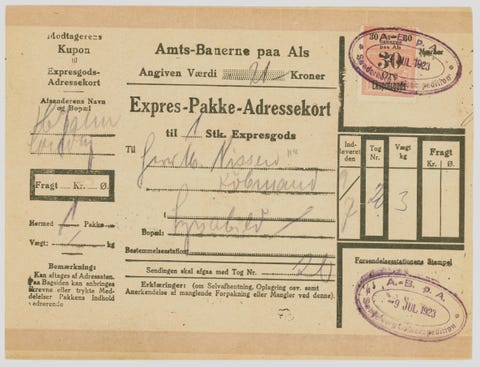 Modtagerens
Kupon
til
Expresgods-
Adressekort
Afsenderens Navn
og Bopæl
Fragt Kr. Ø.
Hermed 1 Pakke
Vægt: kg
Bemærkning:
Kan aftages af Adressaten.
Paa Bagsiden kan anbringes
skrevne eller trykte Med-
delelser Pakkens Indhold
vedrørende
Amts-Banerne paa Als
Angiven Værdi Kroner
Expres-Pakke-Adressekort
til 1 Stk. Expresgods
Til Herr M. Nissen
Købmand
Bopæl:
Bestemmelsesstation:
Sendingen skal afgaa med Tog Nr. 20
Erklæringer: (om Selvafhentning, Oplagring osv. samt
Anerkendelse af manglende Forpakning eller Mangler ved denne).
30 A.-B. p. A.
30
Øre
Expresgods
A.-B. p. A.
JUL 1923
Indleveret den
Tog Nr.
Vægt kg
Fragt
Kr. Ø.
9/7 20 3
Forsendelsesstationens Stempel
A.-B. p. A.
-9 JUL 1923